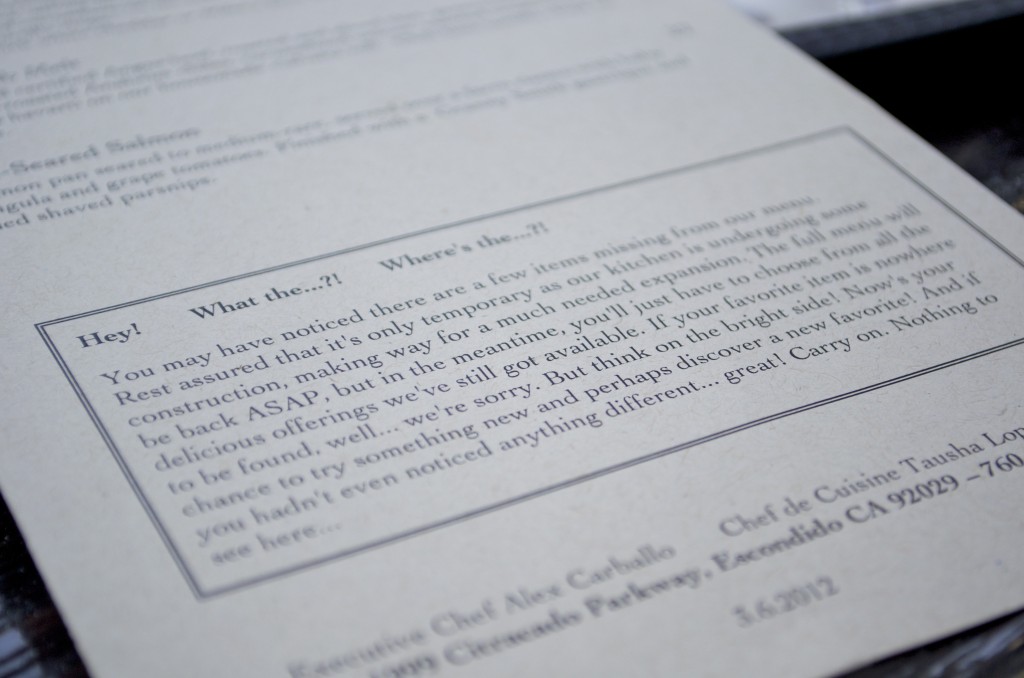 Mole
-Seared Salmon
mon pan seared to medium-rare,
ugula and grape tomatoes. Finished with a
ed shaved parsnips.
Hey! What the...?! Where's the...?!
You may have noticed there are a few items missing from our menu.
Rest assured that it's only temporary as our kitchen is undergoing some
construction, making way for a much needed expansion. The full menu will
be back ASAP, but in the meantime, you'll just have to choose from all the
delicious offerings we've still got available. If your favorite item is nowhere
to be found, well... we're sorry. But think on the bright side! Now's your
chance to try something new and perhaps discover a new favorite! And if
you hadn't even noticed anything different... great! Carry on. Nothing to
see here...
Executive Chef Alex Carballo Chef de Cuisine Tausha Lop
1999 Citracado Parkway, Escondido CA 92029 – 760
3.6.2012